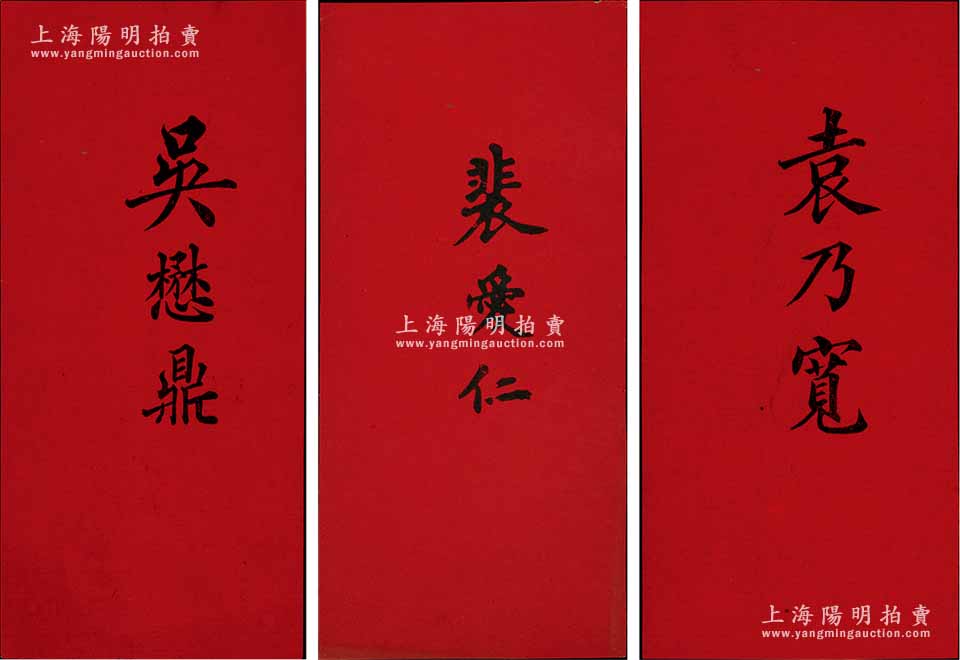 上海陽明拍賣
www.yangmingauction.com
吳懋鼎
裴愛仁
上海陽明拍賣
www.yangmingauction.com
袁乃寬
上海陽明拍賣
www.yangmingauction.com